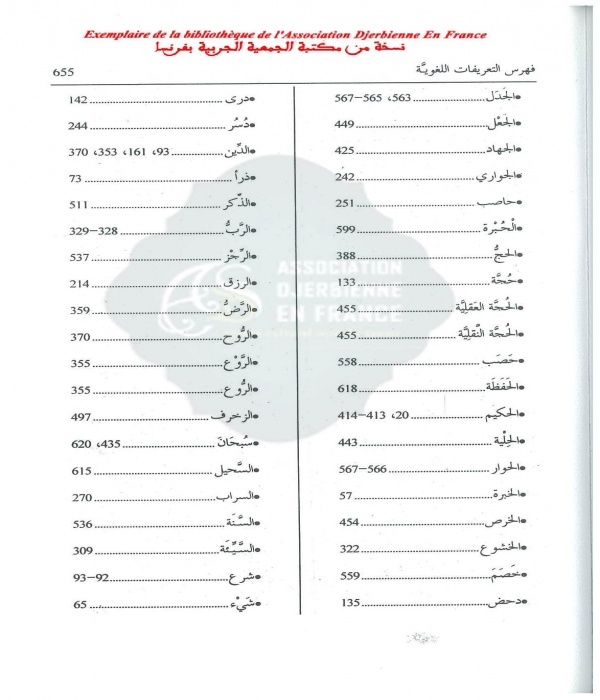 Exemplaire de la bibliothèque de l'Association Djerbienne En France
نسخة من مكتبة الجمعية الجربية بفرنسا
فهرس التعريفات اللغويَّة 655
•الجَدَل ................ 563، 565–567
•الجَعْل ................ 449
•الجهاد ................ 425
•الجواري ................ 242
•حاصب ................ 251
•الْحُبْرة ................ 599
•الحجُّ ................ 388
•حُجَّة ................ 133
•الحُجَّة العَقليَّة ................ 455
•الحُجَّة النَّقليَّة ................ 455
•حَصَب ................ 558
•الحَفَظَة ................ 618
•الحكيم ................ 20، 413–414
•الحِلْية ................ 443
•الحوار ................ 566–567
•الخبرة ................ 57
•الخرص ................ 454
•الخشوع ................ 322
•خَصَمَ ................ 559
•دحض ................ 135
•درى ................ 142
•دُسُر ................ 244
•الدِّين ................ 93، 161، 353، 370
•ذرأ ................ 73
•الذِّكر ................ 511
•الرَّبُّ ................ 328–329
•الرِّجْز ................ 537
•الرزق ................ 214
•الرَّضُّ ................ 359
•الرُّوح ................ 370
•الرَّوْع ................ 355
•الرُّوع ................ 355
•الزخرف ................ 497
•سُبحَانَ ................ 435، 620
•السَّحيل ................ 615
•السراب ................ 270
•السنَّة ................ 536
•السَّيِّئَة ................ 309
•شرع ................ 92–93
•شَيْء ................ 65
ASSOCIATION
DJERBIENNE
EN FRANCE